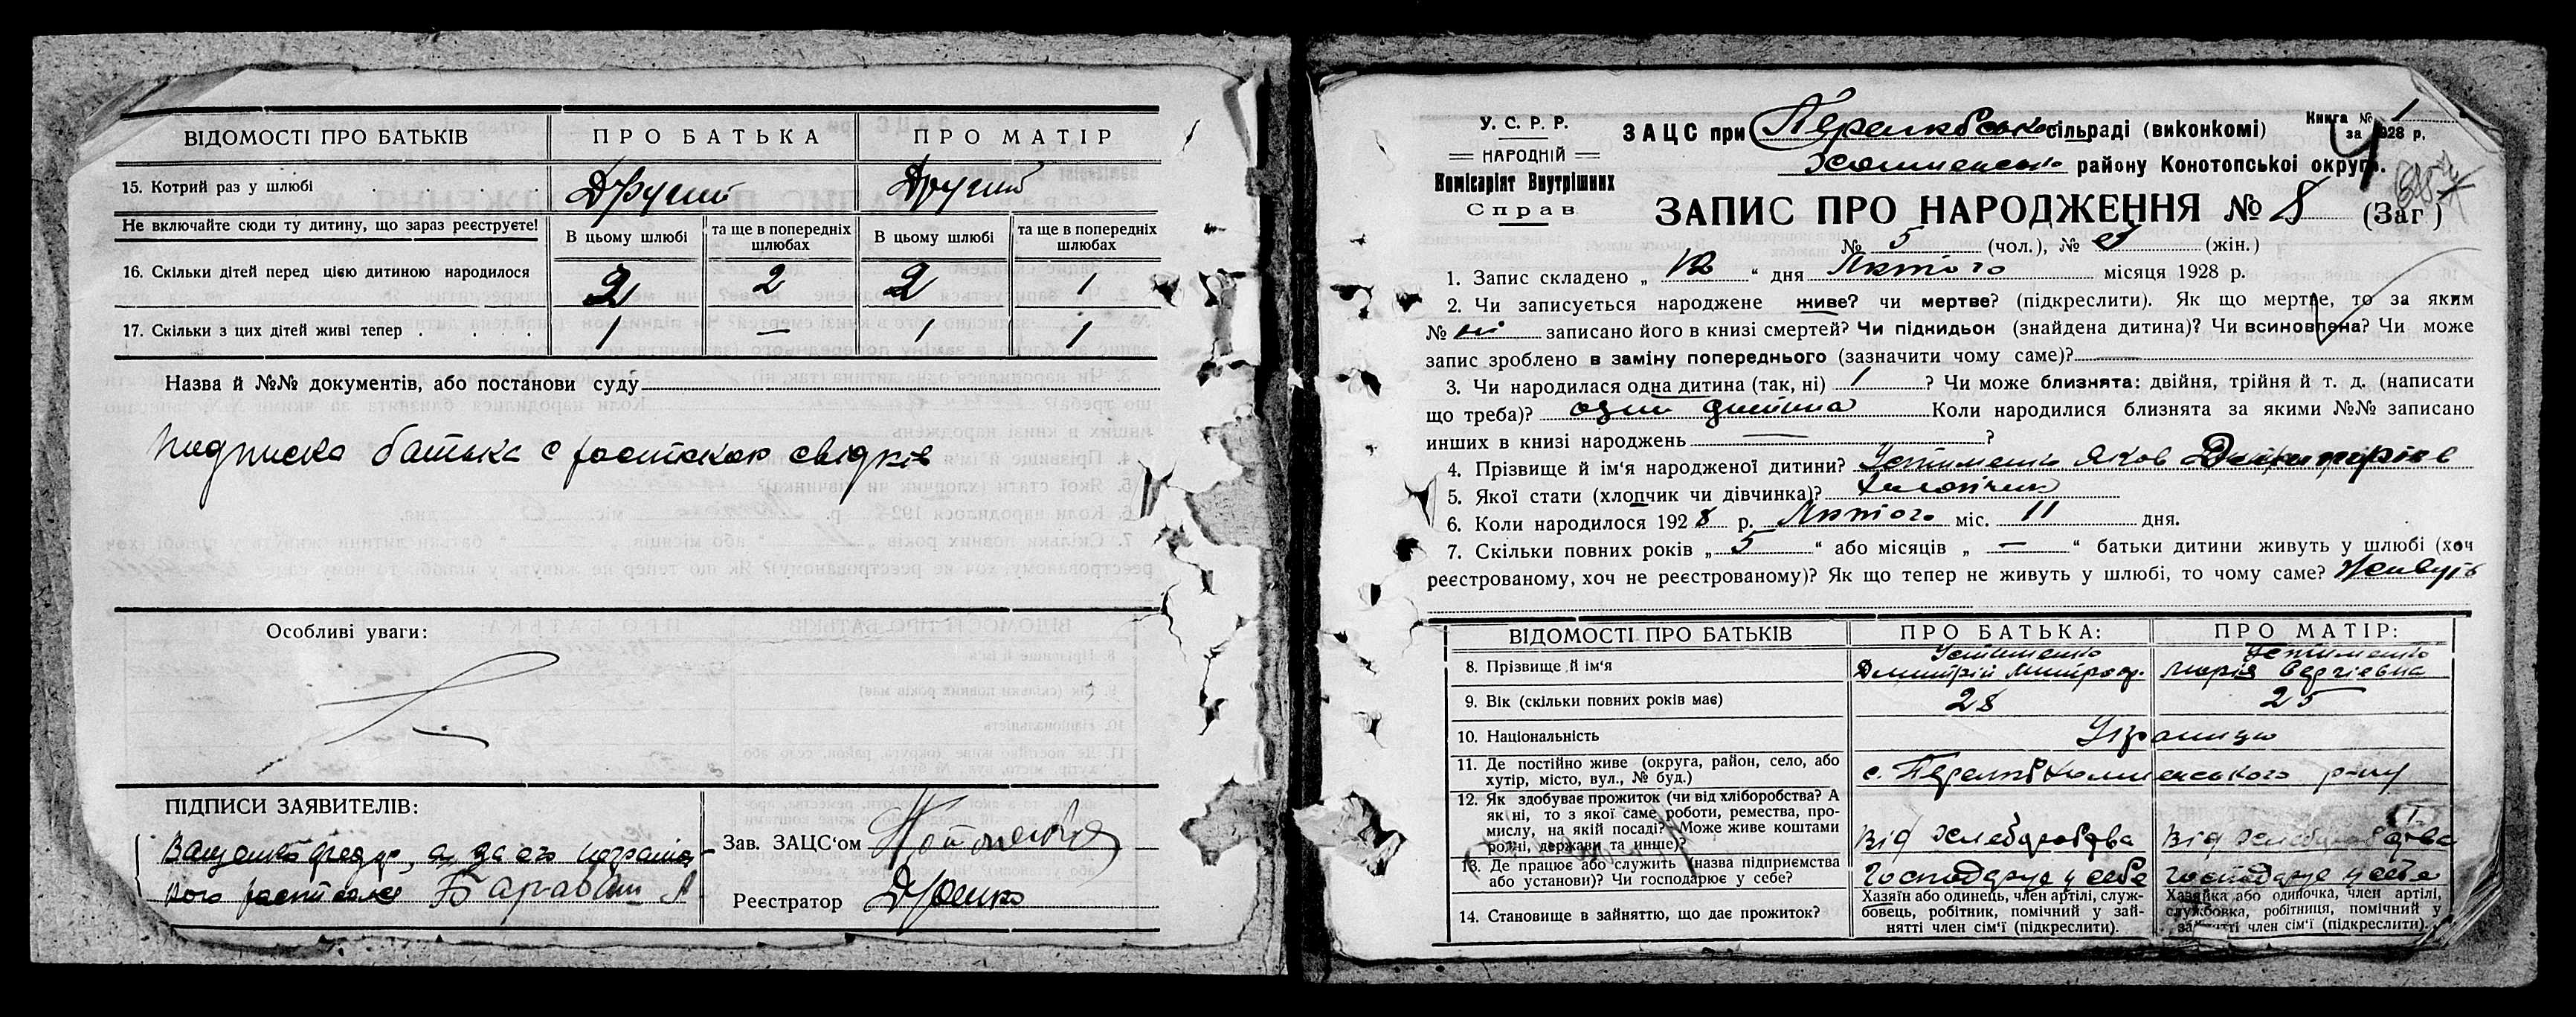 ВІДОМОСТІ ПРО БАТЬКІВ ПРО БАТЬКА ПРО МАТІР
15. Котрий раз у шлюбі . . . . Другий Другий
Не включайте сюди ту дитину, що зараз реєструєте! В цьому шлюбі та ще в попередніх шлюбах В цьому шлюбі та ще в попередніх шлюбах
16. Скільки дітей перед цією дитиною народилося 2 2 2 1
17. Скільки з цих дітей живі тепер . . . . 1 — 1 1
Назва й №№ документів, або постанови суду
підписка батька с роспискою свідків
Особливі уваги:
ПІДПИСИ ЗАЯВИТЕЛІВ:
а за его неграмот-
ного росписалс Барабаш А
Зав. ЗАЦС'ом
Реєстратор
У. С. Р. Р.
НАРОДНІЙ
Комісаріят Внутрішних
Справ
ЗАЦС при сільраді (виконкомі)
району Конотопської округи.
Книга № 1
за 1928 р.
ЗАПИС ПРО НАРОДЖЕННЯ № 8 (Заг)
№ 5 (чол.), № (жін.)
1. Запис складено „ 12 “ дня Лютого місяця 1928 р.
2. Чи записується народжене живе? чи мертве? (підкреслити). Як що мертве, то за яким
№ ні записано його в книзі смертей? Чи підкидьок (знайдена дитина)? Чи всиновлена? Чи може
запис зроблено в заміну попереднього (зазначити чому саме)? —
3. Чи народилася одна дитина (так, ні) 1 ? Чи може близнята: двійня, трійня й т. д. (написати
що треба)? один дитина Коли народилися близнята за якими №№ записано
инших в книзі народжень — ?
4. Прізвище й ім'я народженої дитини? Устименко Яков
5. Якої стати (хлопчик чи дівчинка)? Хлопчик
6. Коли народилося 1928 р. Лютого міс. 11 дня.
7. Скільки повних років „ 5 “ або місяців „ — “ батьки дитини живуть у шлюбі (хоч
реєстрованому, хоч не реєстрованому)? Як що тепер не живуть у шлюбі, то чому саме? Живуть
ВІДОМОСТІ ПРО БАТЬКІВ ПРО БАТЬКА: ПРО МАТІР:
8. Прізвище й ім'я Устименко Дмитрій Митроф. Устименко Марія Сергіевна
9. Вік (скільки повних років має) 28 25
10. Національність Українци
11. Де постійно живе (округа, район, село, або
хутір, місто, вул., № буд.)
12. Як здобуває прожиток (чи від хліборобства? А
як ні, то з якої саме роботи, ремества, про-
мислу, на якій посаді? Може живе коштами
рідні, держави та инше)? Від хлеборобства Від хлеборобства
13. Де працює або служить (назва підприємства
або установи)? Чи господарює у себе? Господарує у себе Господарує у себе
14. Становище в зайняттю, що дає прожиток?
Хазяїн або одинець, член артілі, служ-
бовець, робітник, помічний у зай-
нятті член сім'ї (підкреслити).
Хазяйка або одиночка, член артілі,
службовка, робітниця, помічний у
занятті член сім'ї (підкреслити).